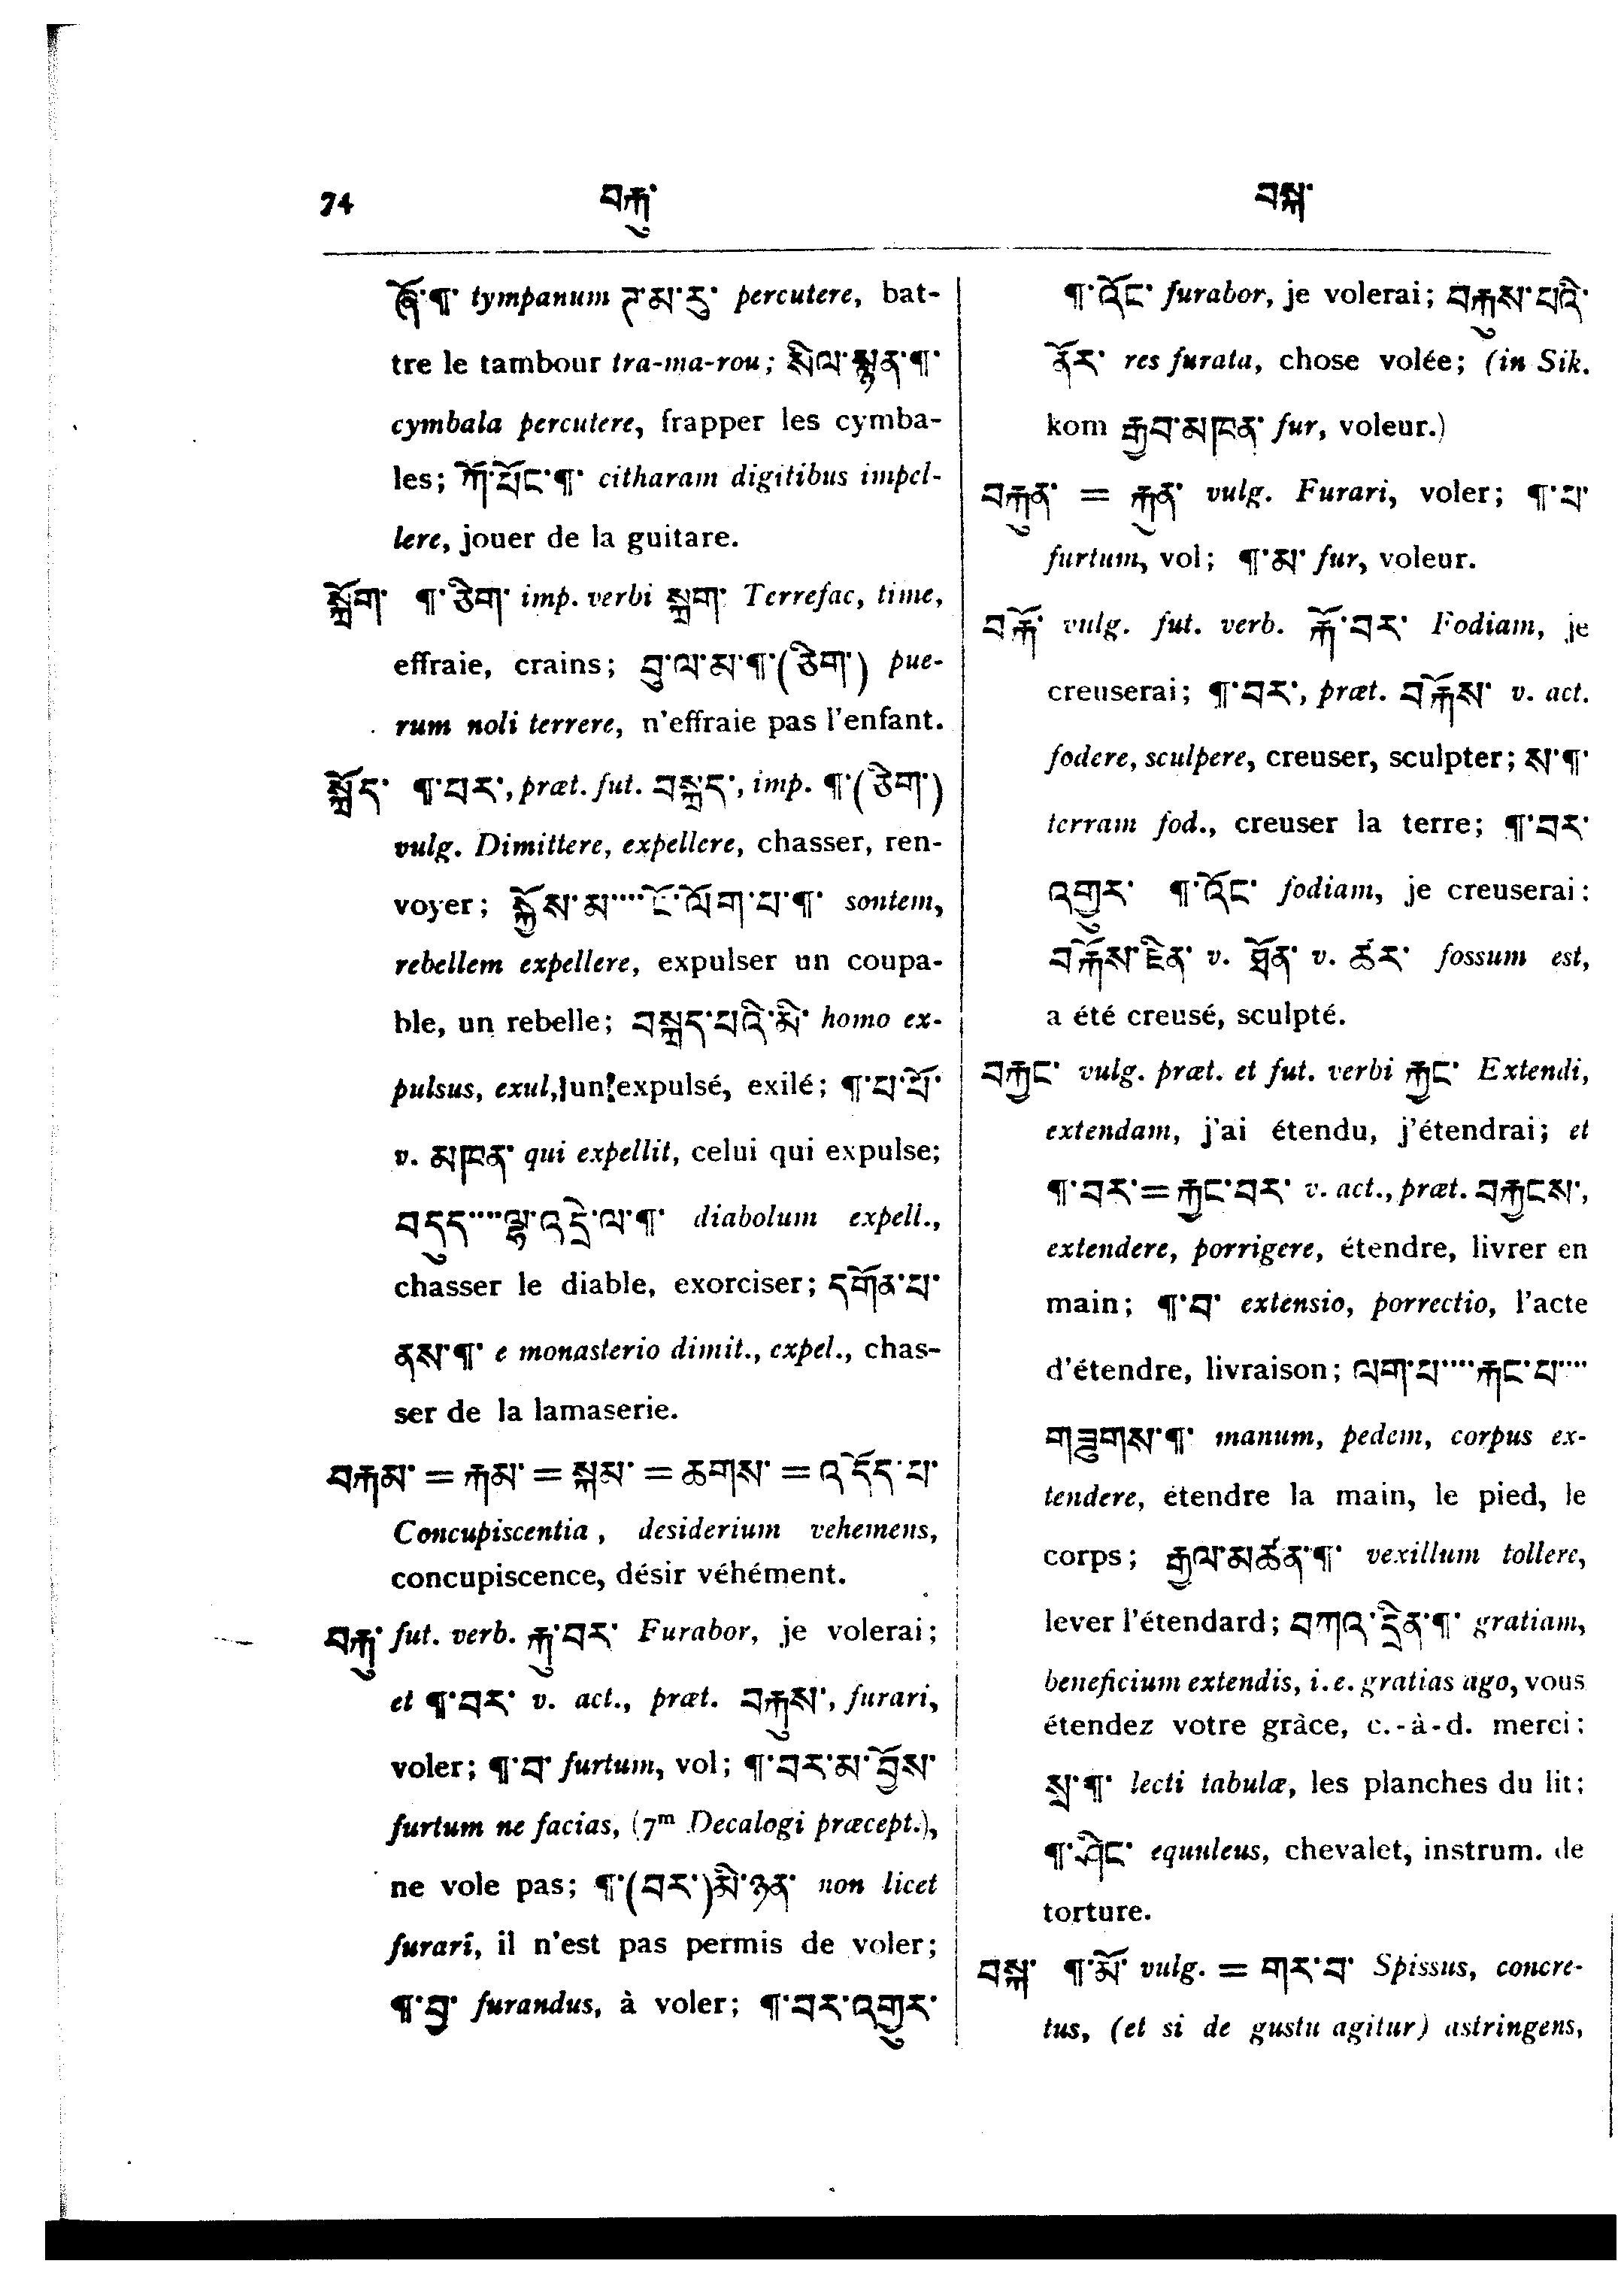 74 བརྐུ་ བསྐ་
¶་ tympanum ཌ་མ་རུ་ percutere, bat-
tre le tambour tra-ma-rou; སིལ་སྙན་¶་
cymbala percutere, frapper les cymba-
les; ཀོ་པོང་¶་ citharam digitibus impel-
lere, jouer de la guitare.
སྐྲོག་ ¶་ཅིག་ imp. verbi སྐྲག་ Terrefac, time,
effraie, crains; བུ་ལ་མ་¶་(ཅིག་) pue-
rum noli terrere, n'effraie pas l'enfant.
སྐྲོད་ ¶་བར་, præt. fut. བསྐྲད་, imp. ¶་(ཅིག་)
vulg. Dimittere, expellere, chasser, ren-
voyer; སྐྱོས་མ་....ངོ་ལོག་པ་¶་ sontem,
rebellem expellere, expulser un coupa-
ble, un rebelle; བསྐྲད་པའི་མི་ homo ex-
pulsus, exul, un expulsé, exilé; ¶་པ་པོ་
v. མཁན་ qui expellit, celui qui expulse;
བདུད་....ལྷ་འདྲེ་ལ་¶་ diabolum expell.,
chasser le diable, exorciser; དགོན་པ་
ནས་¶་ e monasterio dimit., expel., chas-
ser de la lamaserie.
བརྐམ་ = རྐམ་ = སྐམ་ = ཆགས་ = འདོད་པ་
Concupiscentia, desiderium vehemens,
concupiscence, désir véhément.
བརྐུ་ fut. verb. རྐུ་བར་ Furabor, je volerai;
et ¶་བར་ v. act., præt. བརྐུས་, furari,
voler; ¶་བ་ furtum, vol; ¶་བར་མ་བྱོས་
furtum ne facias, (7m Decalogi præcept.),
ne vole pas; ¶་(བར་)མི་ཉན་ non licet
furari, il n'est pas permis de voler;
¶་བྱ་ furandus, à voler; ¶་བར་འགྱུར་
¶་འོང་ furabor, je volerai; བརྐུས་པའི་
ནོར་ res furata, chose volée; (in Sik.
kom རྒྱབ་མཁན་ fur, voleur.)
བརྐུན་ = རྐུན་ vulg. Furari, voler; ¶་པ་
furtum, vol; ¶་མ་ fur, voleur.
བརྐོ་ vulg. fut. verb. རྐོ་བར་ Fodiam, je
creuserai; ¶་བར་, præt. བརྐོས་ v. act.
fodere, sculpere, creuser, sculpter; ས་¶་
terram fod., creuser la terre; ¶་བར་
འགྱུར་ ¶་འོང་ fodiam, je creuserai:
བརྐོས་ཇིན་ v. ཐོན་ v. ཚར་ fossum est,
a été creusé, sculpté.
བརྐྱང་ vulg. præt. et fut. verbi རྐྱང་ Extendi,
extendam, j'ai étendu, j'étendrai; et
¶་བར་ = རྐྱང་བར་ v. act., præt. བརྐྱངས་,
extendere, porrigere, étendre, livrer en
main; ¶་བ་ extensio, porrectio, l'acte
d'étendre, livraison; ལག་པ་....རྐང་པ་....
གཟུགས་¶་ manum, pedem, corpus ex-
tendere, étendre la main, le pied, le
corps; རྒྱལ་མཚན་¶་ vexillum tollere,
lever l'étendard; བཀའ་དྲིན་¶་ gratiam,
beneficium extendis, i.e. gratias ago, vous
étendez votre grâce, c.-à-d. merci:
¶་ lecti tabulæ, les planches du lit;
¶་ཤིང་ equuleus, chevalet, instrum. de
torture.
བསྐ་ ¶་མོ་ vulg. = གར་བ་ Spissus, concre-
tus, (et si de gustu agitur) astringens,